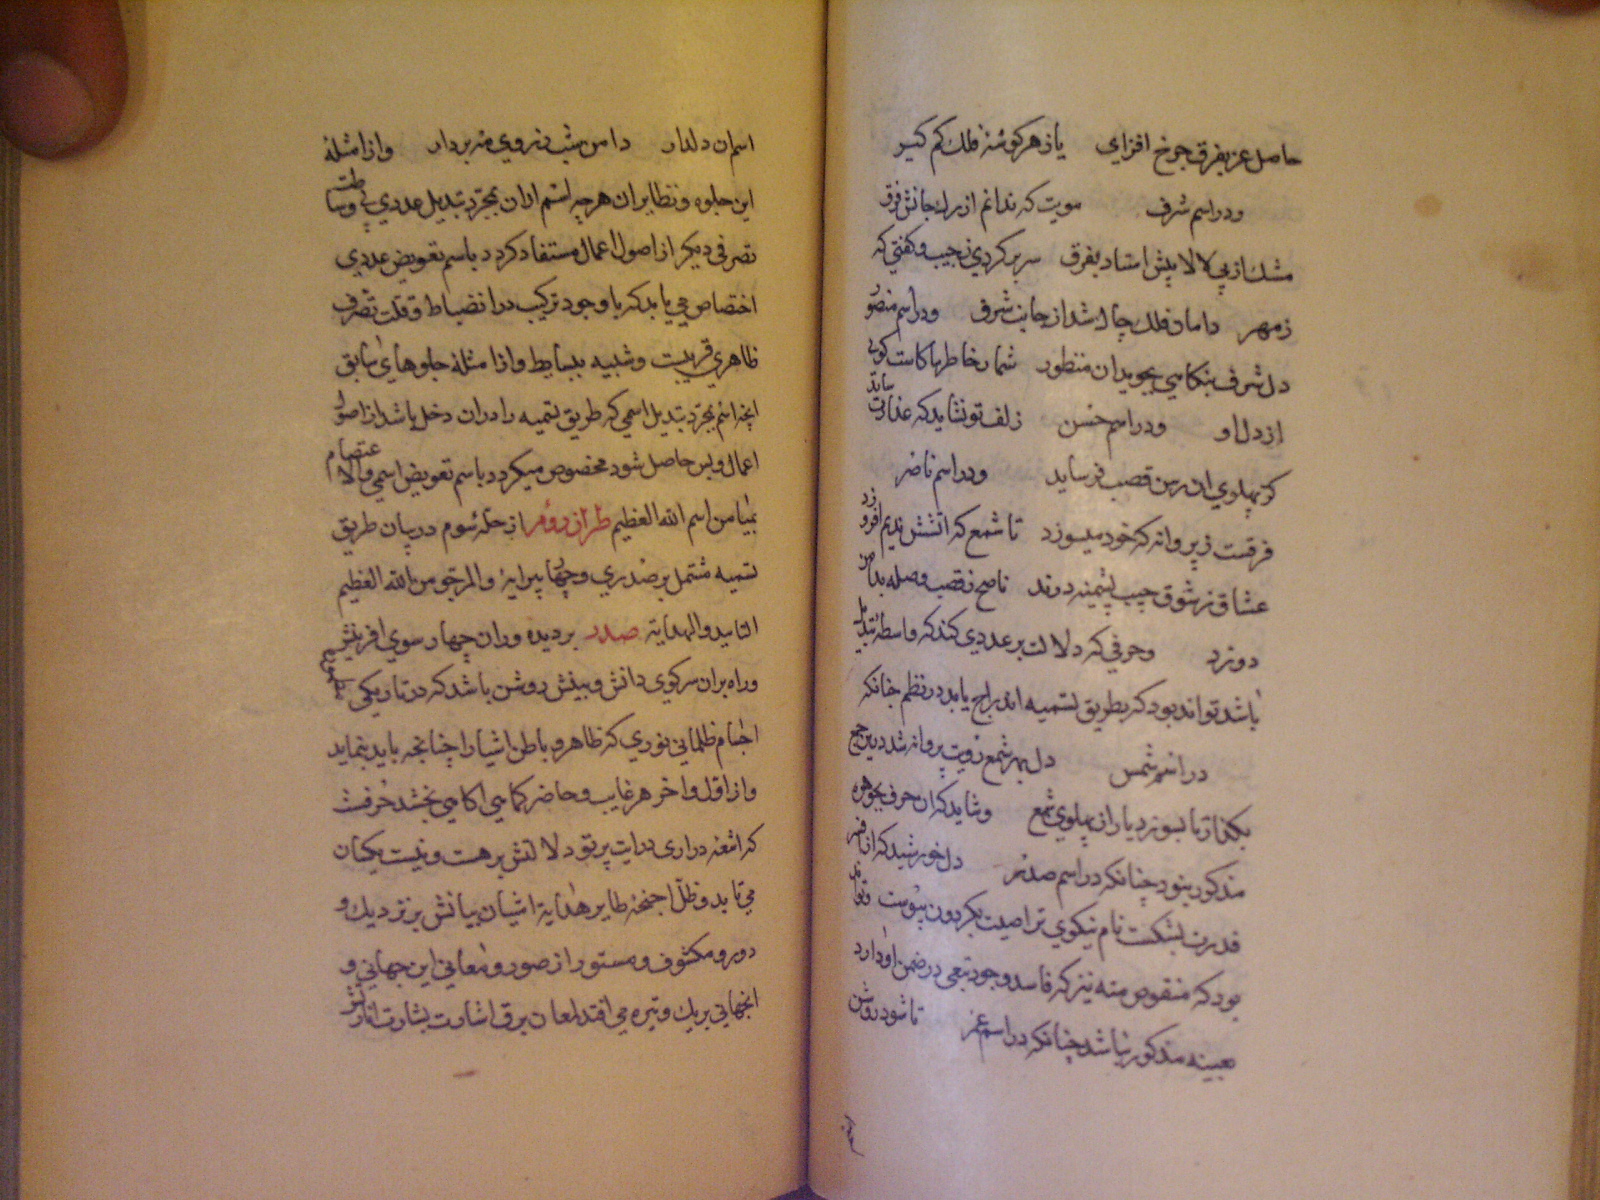 حاصل عز بفرق چرخ افزای یا ز هر گوشهٔ فلک کم گیر
ودر اسم شرف مویت که ندانم از رگ جانش فرق
مشک از پی لالا پیش استاد بفرق سر بر کردی ز جیب و گفتی که
ز مهر دامان فلک چاک شد از جانب شرق ودر اسم منصور
دل شرف بنکامی بجوید ان منظور شمار خاطرها کاست کویی
از دل او ودر اسم حسن زلف تو نشاید که عذارت ساید
کز پهلوی ان رسن قصب فرساید ودر اسم ناصر
فرقست ز پروانه که خود میسوزد تا شمع که اتشش ندیم افروزد
عشاق ز شوق جیب پشمینه درند ناصح ز قصب وصله بدامن
دوزد وحرفی که دلالت بر عددی کند که واسطهٔ تبدیل
باشد تواند بود که بطریق تسمیه اندراج یابد در نظم چنانکه
در اسم شمس دل بهر شمع رویت پروانه شد درین جمع
بگذار تا بسوزد یاران پهلوی شمع وشاید که ان حرف بجوهره
مذکور بنود چنانکه در اسم صدر دل خورشید که از قهر
قدرت بشکست نام نیکوی ترا صیت بگردون پیوست وتواند
بود که منقوص منه نیز که فاسد وجود تبعی در ضمن او دارد
بعینه مذکور نباشد چنانکه در اسم عز تا شود روشن
اسم ان دلدار دامن شب ز روی مه بردار واز امثلهٔ
این جلوه و نظایر ان هرچه اسم ازان بمجرد تبدیل عددی بی وساطت
تصرفی دیگر از اصول اعمال مستفاد کردد باسم تعویض عددی
اختصاص می یابد که با وجود ترکیب در انضباط و قلت تصرف
ظاهری قریبست وشبیه ببسایط واز امثلهٔ جلوهای سابق
انچه اسم بمجرد تبدیل اسمی که طریق تسمیه را دران دخل باشد از اصول
اعمال وبس حاصل شود مخصوص میکردد باسم تعویض اسمی والاعتصام
بمیامن اسم الله العظیم طراز دوم از حلهٔ سوم در بیان طریق
تسمیه مشتمل بر صدری وچهار پیرایه والمرجو من الله العظیم
التایید والهدایة صدر بر دیده وران چهار سوی افرینش
وراه بران سرکوی دانش وبینش روشن باشد که در تاریکی
اجسام ظلمانی نوری که ظاهر وباطن اشیا را چنانچه باید بنماید
واز اول واخر هر غایب وحاضر کماهی اکاهی بخشد حرفست
که اشعهٔ دراری درایت پرتو دلالتش بر هست ونیست یکسان
می تابد وظل اجنحهٔ طایر هدایة اشیان بیانش بر نزدیک و
دور ومکشوف ومستور از صور ومعانی این جهانی و
انجهانی بریک وتیره می افتد لمعان برق اشارت بشارت اثارش